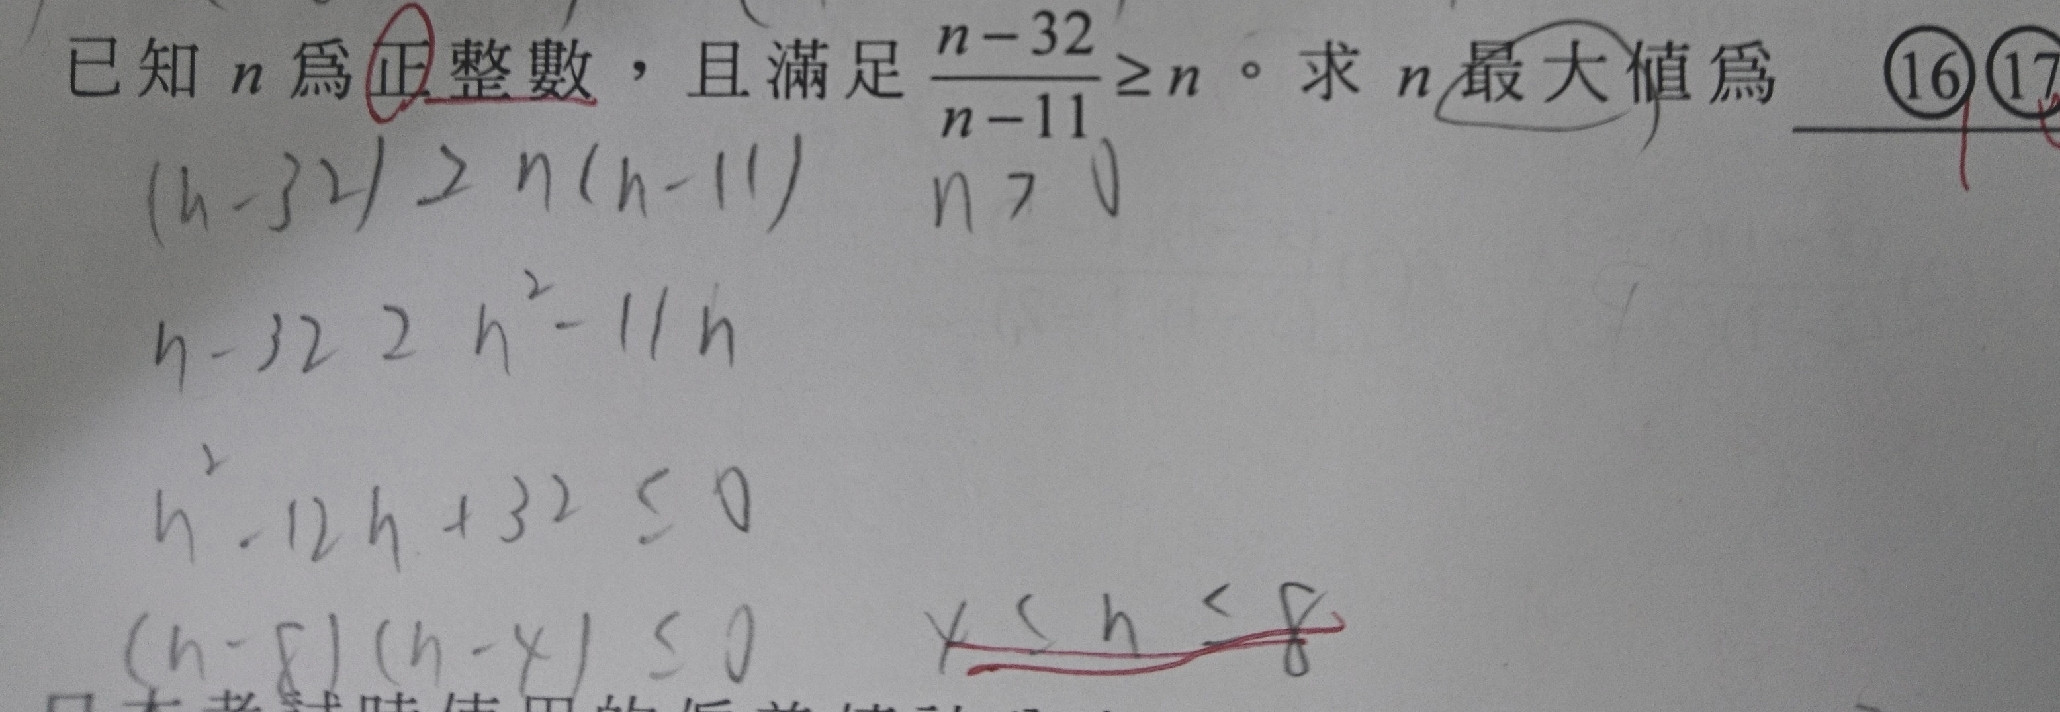 已知 n 為正整數，且滿足 \frac{n-32}{n-11} ≥ n。求 n 最大值為 ⑯⑰
(n-32) ≥ n(n-11) n > 0
n-32 ≥ n²-11n
n²-12n+32 ≤ 0
(n-8)(n-4) ≤ 0 4 ≤ n ≤ 8